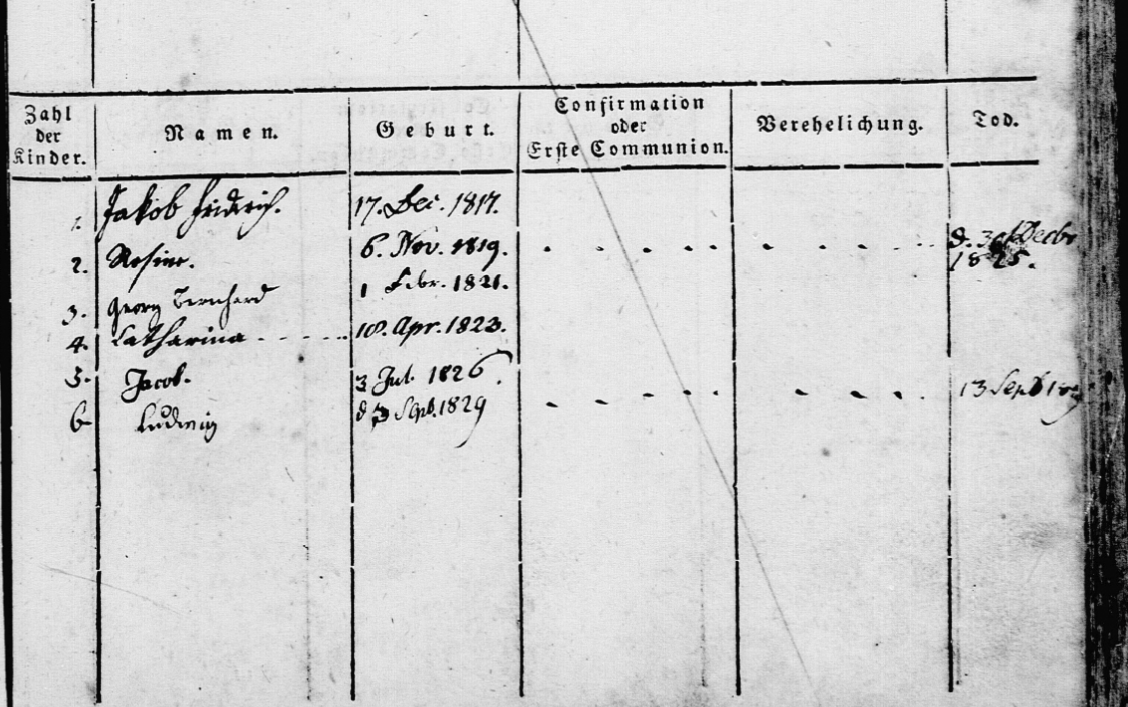 Zahl der Kinder. Namen. Geburt. Confirmation oder Erste Communion. Verehelichung. Tod.
1. Jakob Fridrich. 17. Dec. 1817.
2. Rosine. 6. Nov. 1819. d. Decbr 1825.
3. Georg Bernhard 1 Febr. 1821.
4. Catharina 10. Apr. 1823.
5. Jacob. 3 Jul. 1826.
6 Ludwig d 3 Sept. 1829 13 Sept